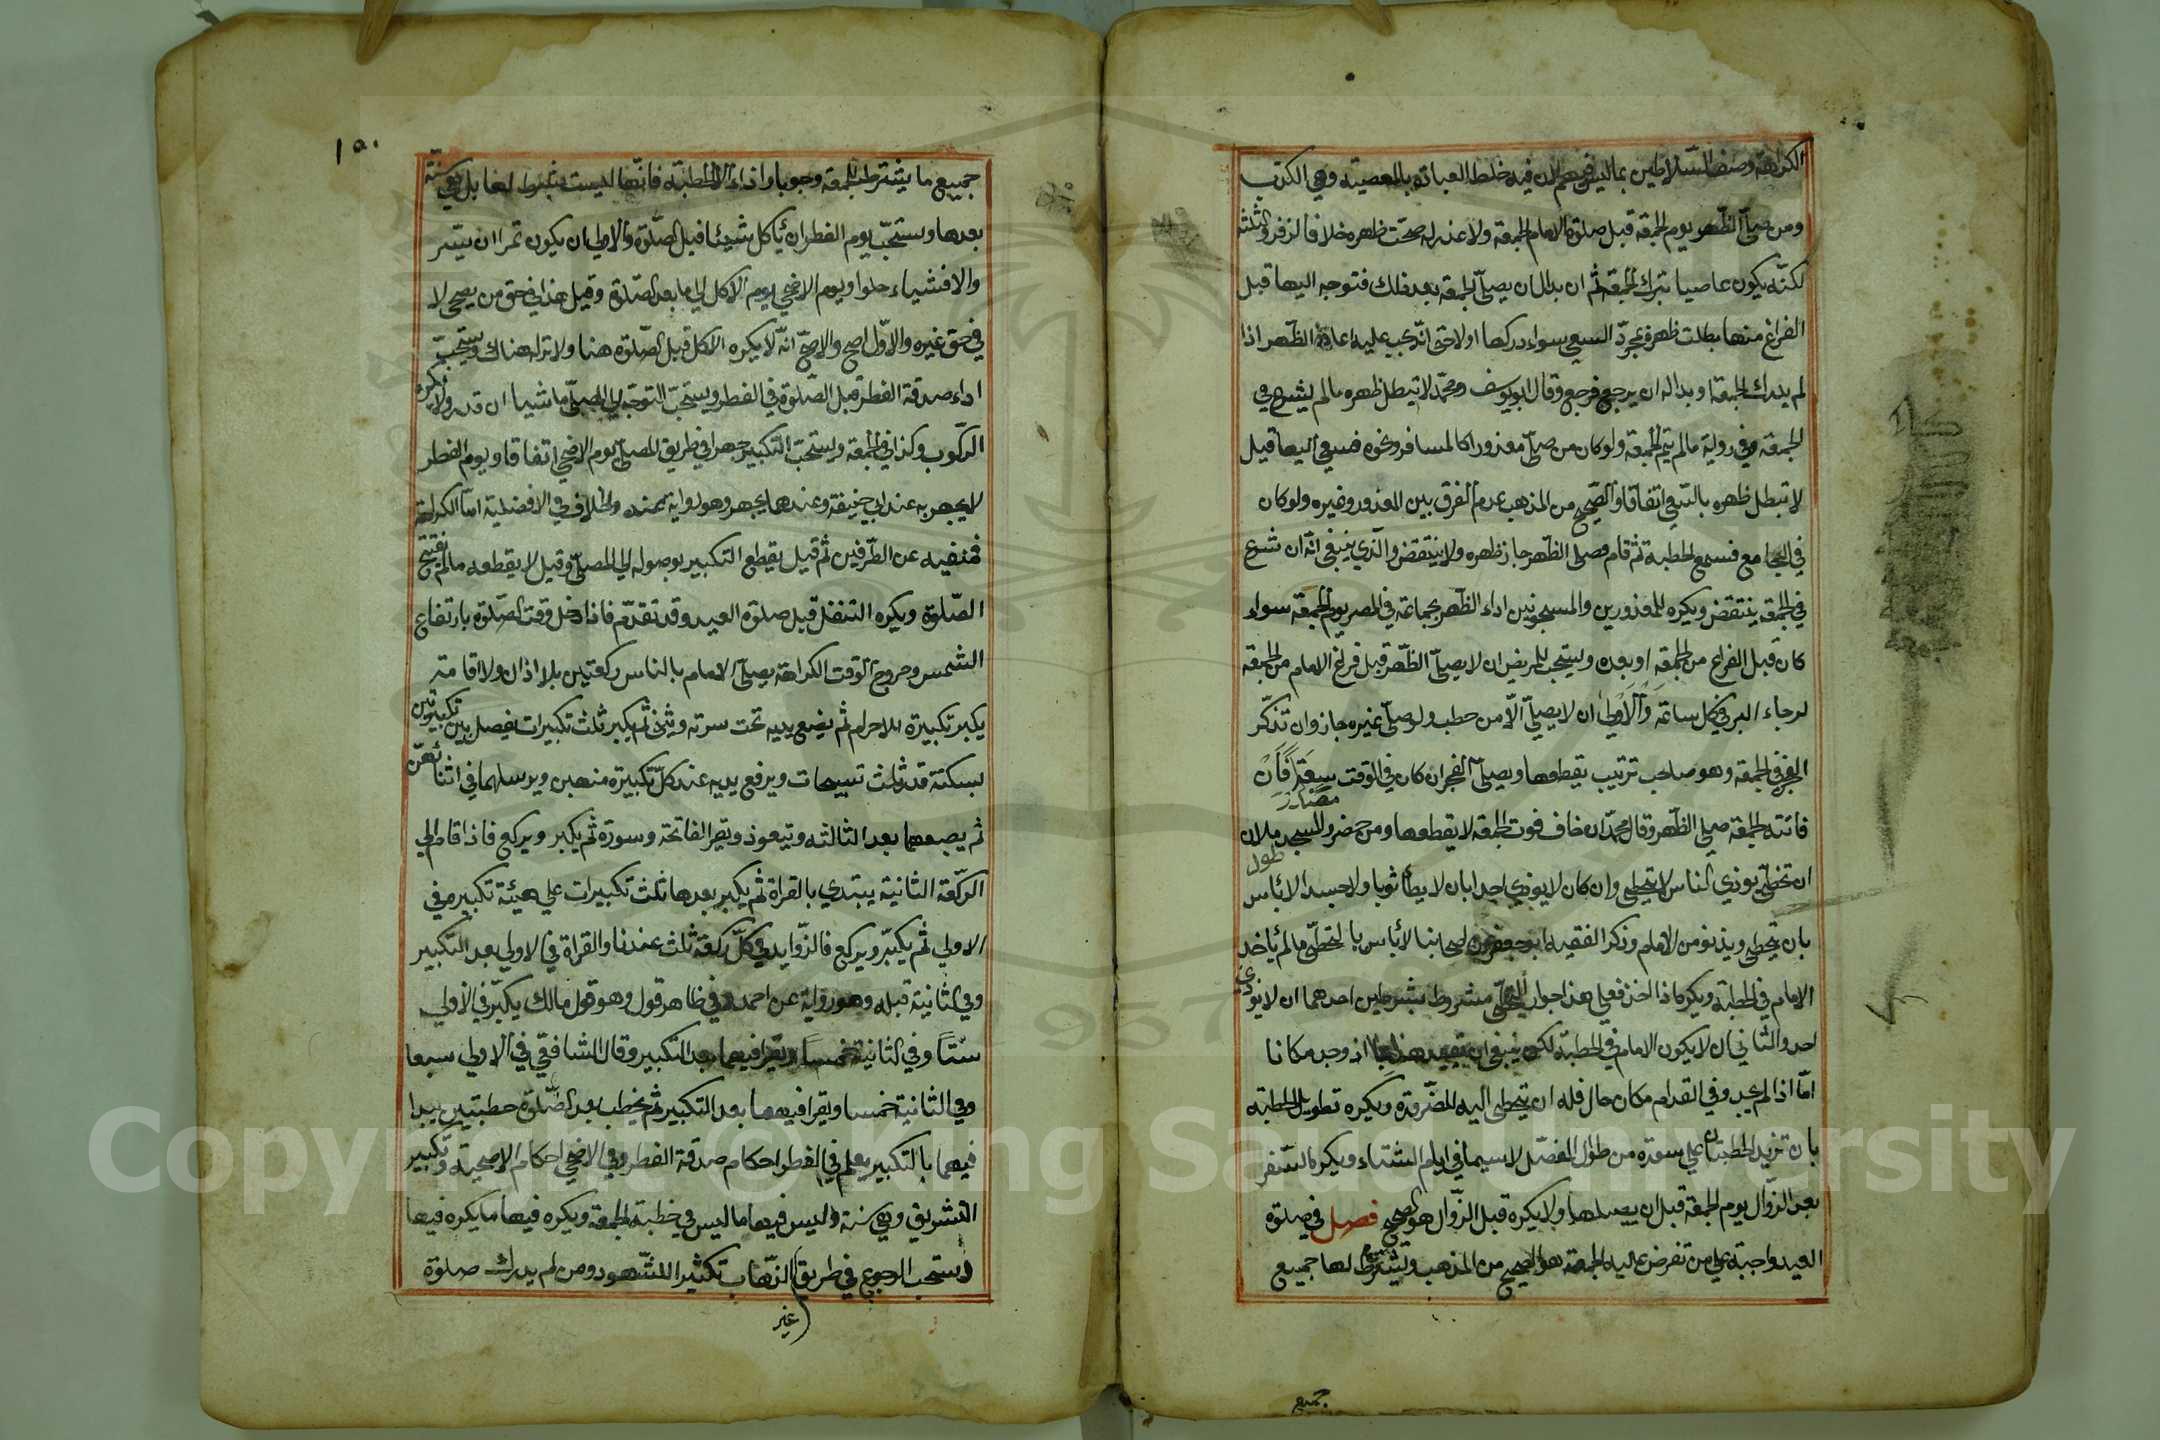 الكراهة وصف السلاطين بما ليس فيهم لان فيه خلط العبادة بالمعصية وهي الكذب
ومن صلى الظهر يوم الجمعة قبل صلوة الامام الجمعة ولا عذر له صحت ظهره خلافا لزفر والثلثة
لكنه يكون عاصيا بترك الجمعة ثم ان بدا له ان يصلي الجمعة بعد ذلك فتوجه اليها قبل
الفراغ منها بطلت ظهره بمجرد السعي سواء دركها اولا حتى انه يجب عليه اعادة الظهر اذا
لم يدرك الجمعة او بدا له ان يرجع فرجع وقال ابو يوسف ومحمد لا تبطل ظهره مالم يشرع في
الجمعة وفي رواية مالم يتم الجمعة ولو كان من صلى معذورا كالمسافر ونحوه فسعى اليها قيل
لا تبطل ظهره بالسعي اتفاقا والصحيح من المذهب عدم الفرق بين المعذور وغيره ولو كان
في الجامع فسمع الخطبة ثم قام فصلى الظهر جاز ظهره ولا ينتقض والذي ينبغي انه ان شرع
في الجمعة ينتقض ويكره للمعذورين والمسجونين اداء الظهر بجماعة في المصر يوم الجمعة سواء
كان قبل الفراغ من الجمعة او بعده ويستحب للمريض ان لا يصلي الظهر قبل فراغ الامام من الجمعة
لرجاء البر في كل ساعة والاولى ان لا يصلي الا من خطب ولو صلى غيره جاز وان تذكر
الفجر في الجمعة وهو صاحب ترتيب يقطعها ويصلي الفجر ان كان في الوقت سعة فان
فاتته الجمعة صلى الظهر وقال محمد ان خاف فوت الجمعة لا يقطعها ومن حضر والمسجد ملان
ان تخطى يوذي الناس لا يتخطى وان كان لا يوذي احدا بان لا يطأ ثوبا ولا جسدا لا بأس
بان يتخطى ويدنو من الامام وذكر الفقيه ابو جعفر من اصحابنا لا بأس بالتخطي مالم يأخذ
الامام في الخطبة ويكره اذا اخذ فعلى هذا جواز التخطي مشروط بشرطين احدهما ان لا يوذي
احد والثاني ان لا يكون الامام في الخطبة لكن ينبغي ان يقيد هذا بما اذ وجد مكانا
اما اذا لم يجد وفي القدام مكان خال فله ان يتخطى اليه للضرورة ويكره تطويل الخطبة
بان تزيد الخطبتان على سورة من طوال المفصل لا سيما في ايام الشتاء ويكره السفر
بعد الزوال يوم الجمعة قبل ان يصليها ولا يكره قبل الزوال هو الصحيح فصل في صلوة
العيد واجبة على من تفرض عليه الجمعة هو الصحيح من المذهب وتشترط لها جميع
جميع
١٥٠
جميع ما يشترط للجمعة وجوبا واداء الا الخطبة فانها ليست بشرط لها بل هي سنة
بعدها ويستحب يوم الفطر ان يأكل شيئا قبل الصلوة والاولى ان يكون تمرا ان تيسر
والا فشياء حلوا ويوم الاضحى يوم الاكل الى ما بعد الصلوة وقيل هذا في حق من يضحي لا
في حق غيره والاول اصح والاصح انه لا يكره الاكل قبل الصلوة هنا ولا تركه هناك ويستحب
اداء صدقة الفطر قبل الصلوة في الفطر ويستحب التوجه الى المصلى ماشيا ان قدر ولا يكره
الركوب وكذا في الجمعة ويستحب التكبير جهرا في طريق المصلى يوم الاضحى اتفاقا ويوم الفطر
لا يجهر به عند ابي حنيفة وعندهما يجهر وهو رواية عنه والخلاف في الافضلية اما الكراهة
فمنفيه عن الطرفين ثم قيل يقطع التكبير بوصوله الى المصلى وقيل لا يقطعه مالم يفتتح
الصلوة ويكره التنفل قبل صلوة العيد وقد تقدم فاذا دخل وقت الصلوة بارتفاع
الشمس وخروج الوقت الكراهة يصلي الامام بالناس ركعتين بلا اذان ولا اقامة
يكبر تكبيرة الاحرام ثم يضع يديه تحت سرته ويثني ثم يكبر ثلث تكبيرات يفصل بين تكبيرتين
بسكتة قدر ثلث تسبيحات ويرفع يديه عند كل تكبيرة منهن ويرسلهما في اثنائهن
ثم يضعهما بعد الثالثه ويتعوذ ويقرا الفاتحة وسورة ثم يكبر ويركع فاذا قام الى
الركعة الثانية يبتدي بالقراة ثم يكبر بعدها ثلث تكبيرات على هيئة تكبيره في
الاولى ثم يكبر ويركع فالزوايد في كل ركعة ثلث عندنا والقراة في الاولى بعد التكبير
وفي الثانية قبله وهو رواية عن احمد وفي ظاهر قول وهو قول مالك يكبر في الاولى
ستا وفي الثانية خمسا ويقرا فيهما بعد التكبير وقال الشافعي في الاولى سبعا
وفي الثانية خمسا ويقرا فيهما بعد التكبير ثم يخطب بعد الصلوة خطبتين يبدا
فيهما بالتكبير يعلم في الفطر احكام صدقة الفطر وفي الاضحى احكام الاضحية وتكبير
التشريق وهي سنة وليس فيها ما ليس في خطبة الجمعة ويكره فيها ما يكره فيها
ويستحب الرجوع في طريق الذهاب تكثيرا للشهود ومن لم يدرك صلوة
غير
Copyright © King Saud University
1957